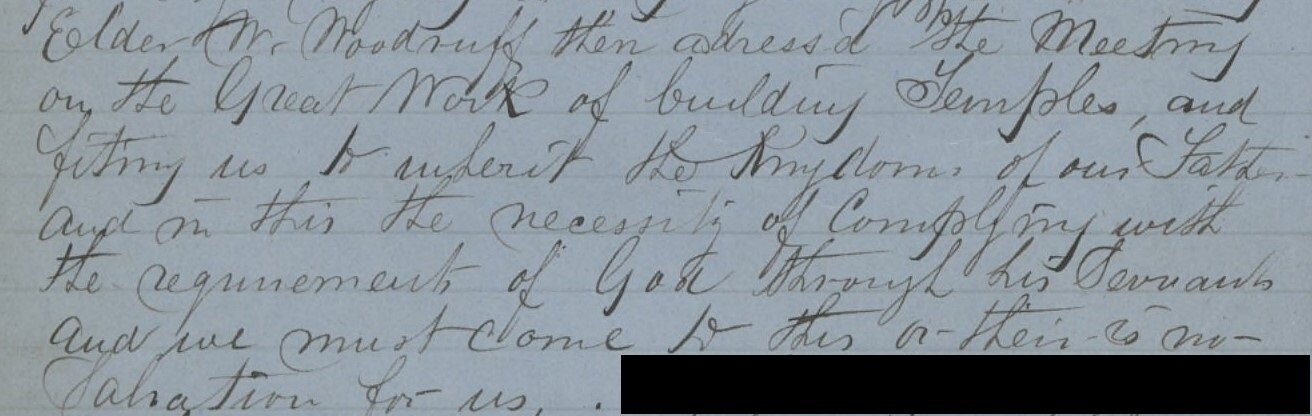 Elder W. Woodruff then adress'd the Meeting
on the Great Work of building Temples, and
fiting us to inherit the Kingdom of our Father
and in this the necessity of Complying with
the requirements of God through his Servants
and we must come to this or their is no
Salvation for us.